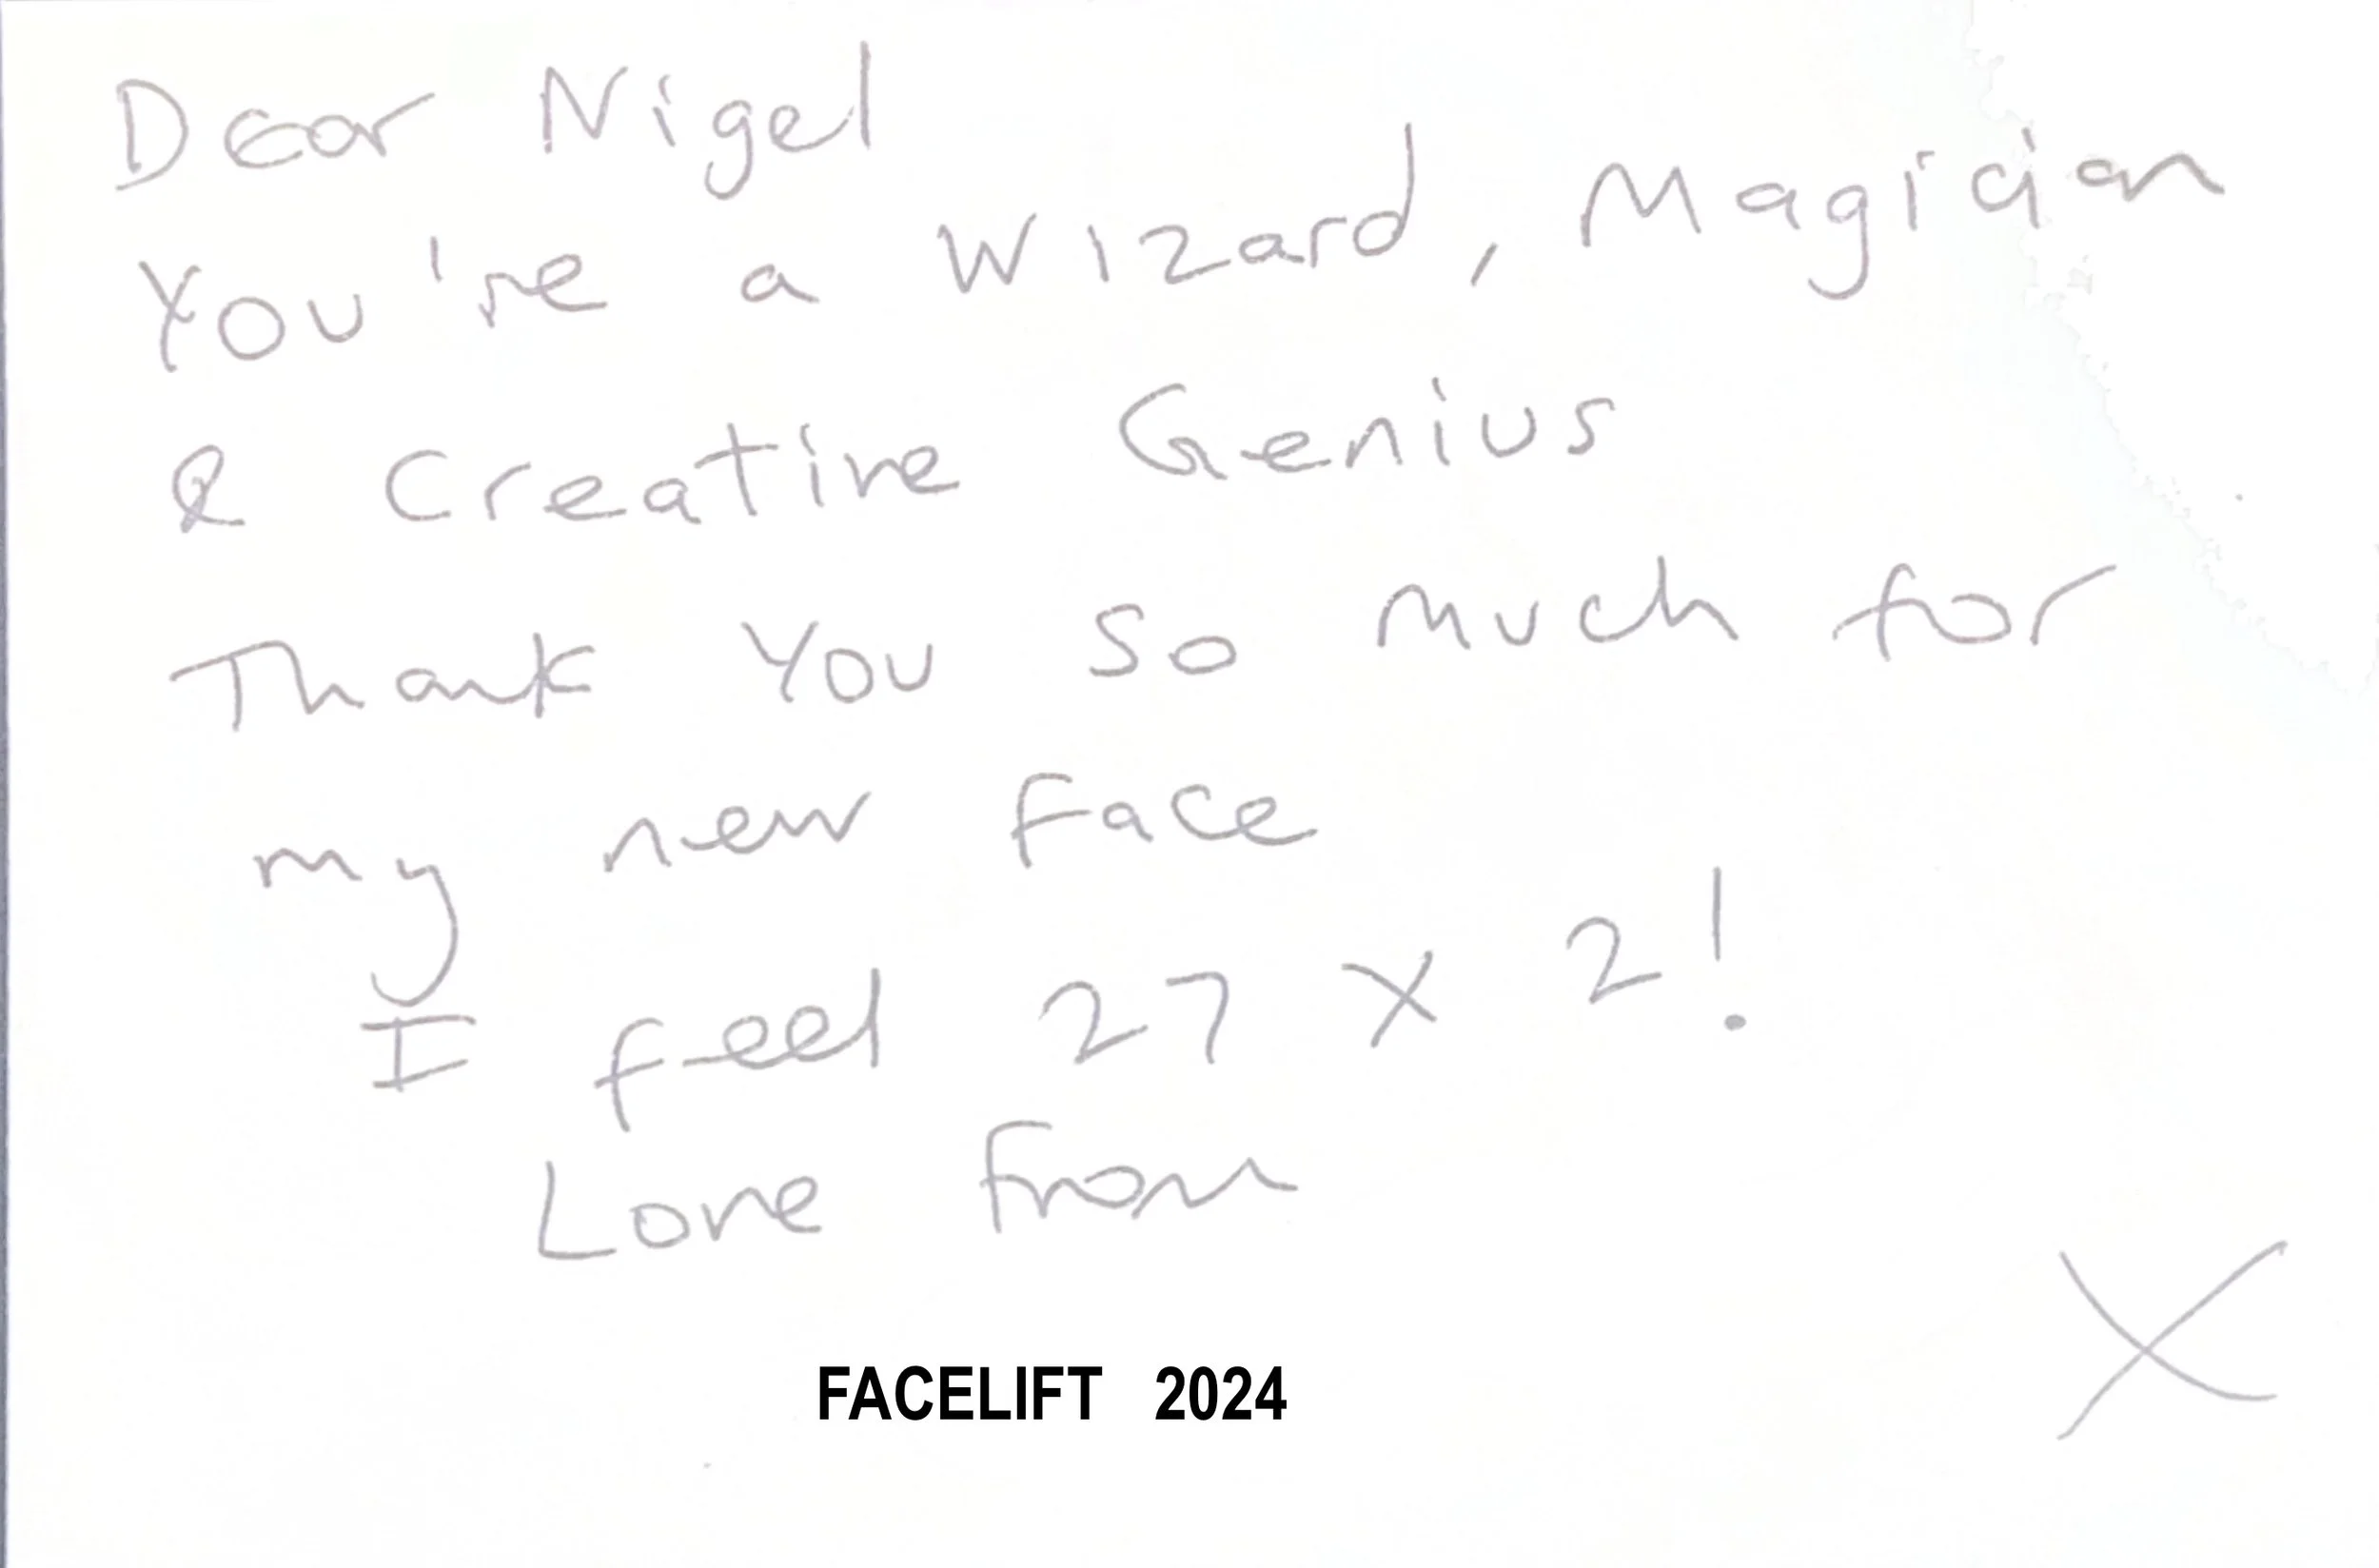 Dear Nigel
You're a Wizard, Magician
& Creative Genius
Thank you so much for
my new face
I feel 27 x 2!
Love from
X
FACELIFT 2024